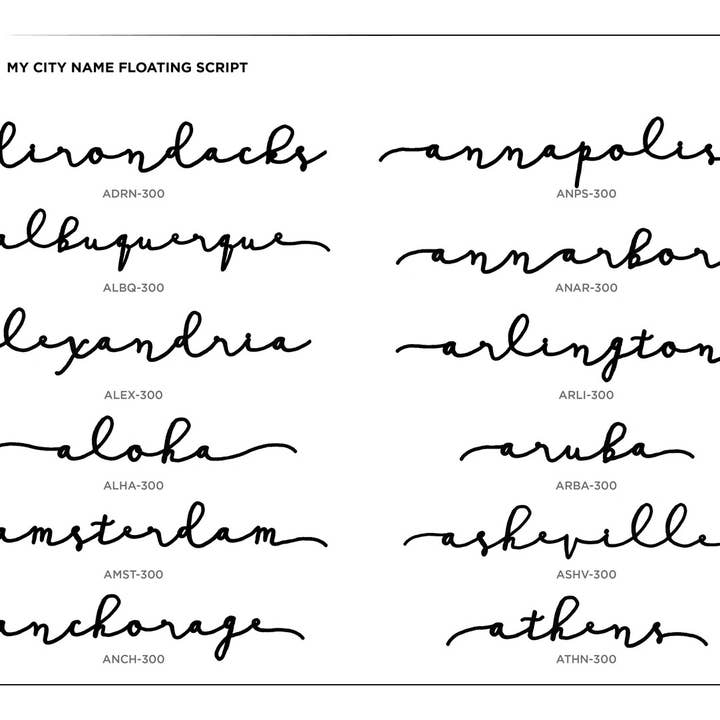 MY CITY NAME FLOATING SCRIPT
dirondacks
ADRN-300
albuquerque
ALBQ-300
lexandria
ALEX-300
aloha
ALHA-300
amsterdam
AMST-300
anchorage
ANCH-300
annapolis
ANPS-300
annarbor
ANAR-300
arlington
ARLI-300
aruba
ARBA-300
asheville
ASHV-300
athens
ATHN-300